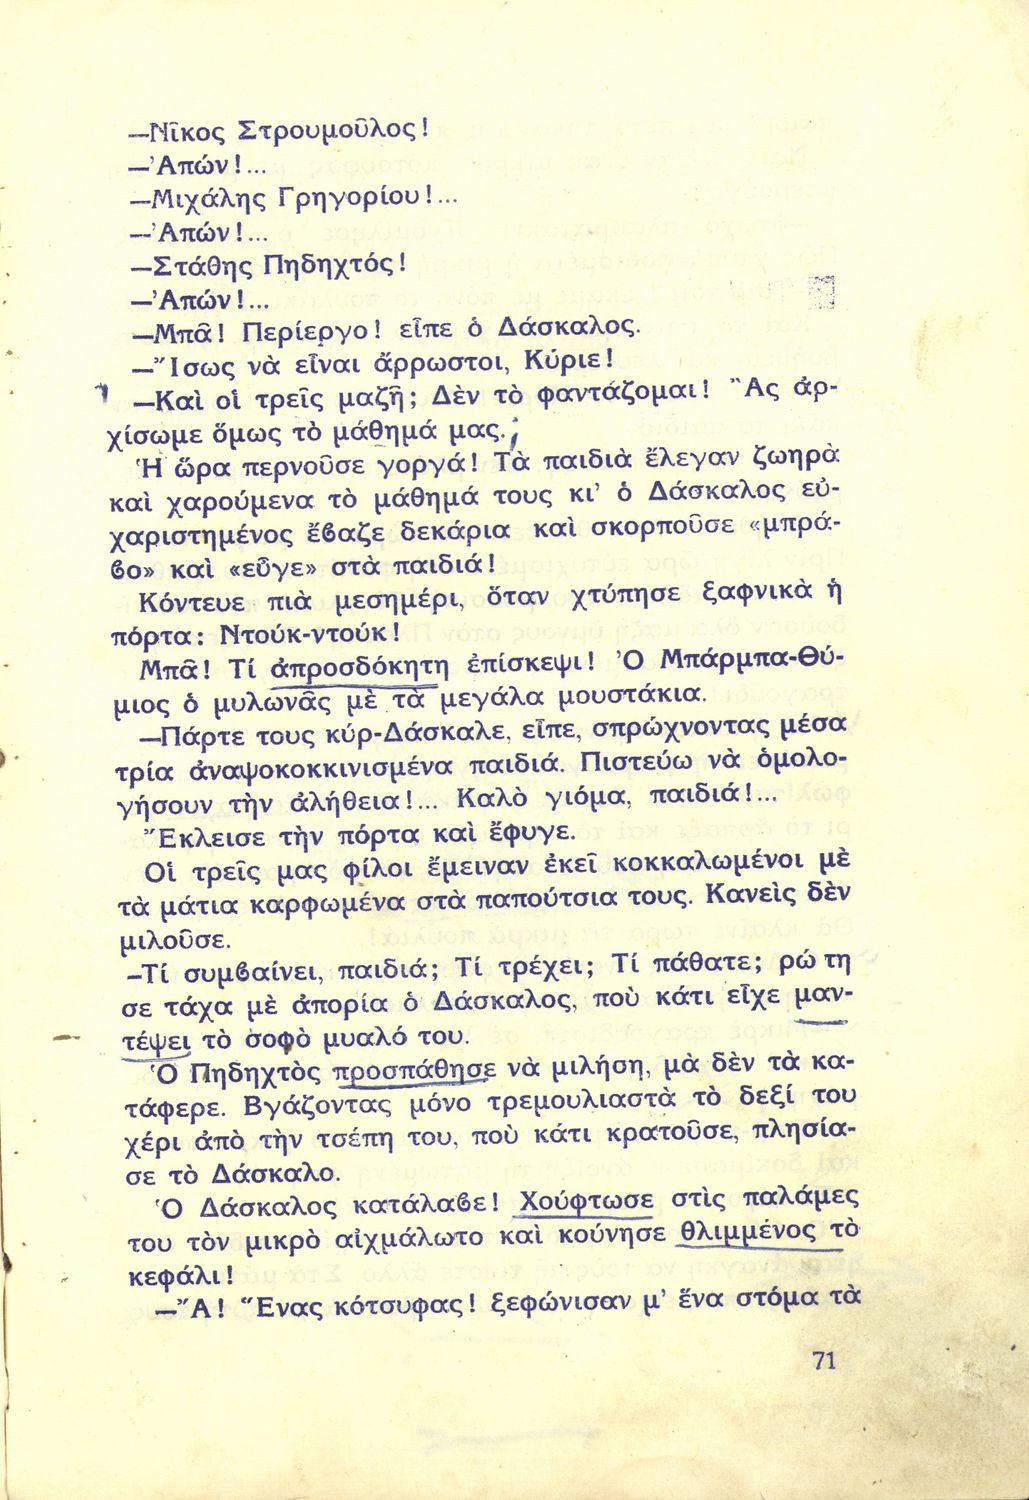 —Νῖκος Στρουμοῦλος!
—Ἀπών!...
—Μιχάλης Γρηγορίου!...
—Ἀπών!...
—Στάθης Πηδηχτός!
—Ἀπών!...
—Μπᾶ! Περίεργο! εἶπε ὁ Δάσκαλος.
—Ἴσως νὰ εἶναι ἄρρωστοι, Κύριε!
—Καὶ οἱ τρεῖς μαζῆ; Δὲν τὸ φαντάζομαι! Ἂς ἀρ-
χίσωμε ὅμως τὸ μάθημά μας.
Ἡ ὥρα περνοῦσε γοργά! Τὰ παιδιὰ ἔλεγαν ζωηρὰ
καὶ χαρούμενα τὸ μάθημά τους κι’ ὁ Δάσκαλος εὐ-
χαριστημένος ἔβαζε δεκάρια καὶ σκορποῦσε «μπρά-
βο» καὶ «εὖγε» στὰ παιδιά!
Κόντευε πιὰ μεσημέρι, ὅταν χτύπησε ξαφνικὰ ἡ
πόρτα: Ντούκ-ντούκ!
Μπᾶ! Τί ἀπροσδόκητη ἐπίσκεψι! Ὁ Μπάρμπα-Θύ-
μιος ὁ μυλωνᾶς μὲ τὰ μεγάλα μουστάκια.
—Πάρτε τους κύρ-Δάσκαλε, εἶπε, σπρώχνοντας μέσα
τρία ἀναψοκοκκινισμένα παιδιά. Πιστεύω νὰ ὁμολο-
γήσουν τὴν ἀλήθεια!... Καλὸ γιόμα, παιδιά!...
Ἔκλεισε τὴν πόρτα καὶ ἔφυγε.
Οἱ τρεῖς μας φίλοι ἔμειναν ἐκεῖ κοκκαλωμένοι μὲ
τὰ μάτια καρφωμένα στὰ παπούτσια τους. Κανεὶς δὲν
μιλοῦσε.
—Τί συμβαίνει, παιδιά; Τί τρέχει; Τί πάθατε; ρώτη
σε τάχα μὲ ἀπορία ὁ Δάσκαλος, ποὺ κάτι εἶχε μαν-
τέψει τὸ σοφὸ μυαλό του.
Ὁ Πηδηχτὸς προσπάθησε νὰ μιλήση, μὰ δὲν τὰ κα-
τάφερε. Βγάζοντας μόνο τρεμουλιαστὰ τὸ δεξί του
χέρι ἀπὸ τὴν τσέπη του, ποὺ κάτι κρατοῦσε, πλησία-
σε τὸ Δάσκαλο.
Ὁ Δάσκαλος κατάλαβε! Χούφτωσε στὶς παλάμες
του τὸν μικρὸ αἰχμάλωτο καὶ κούνησε θλιμμένος τὸ
κεφάλι!
—Ἄ! Ἕνας κότσυφας! ξεφώνισαν μ’ ἕνα στόμα τὰ
71